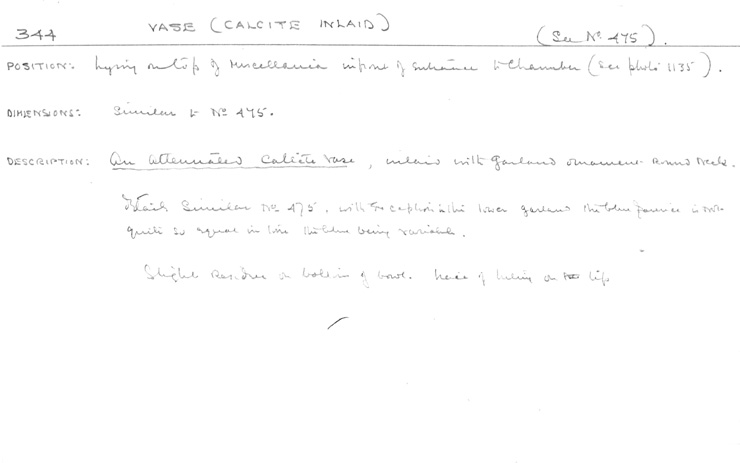 344
VASE (CALCITE INLAID)
(See No. 475).
POSITION: Lying on top of Miscellania in front of entrance to Chamber (See photo 1135).
DIMENSIONS: Similar to No. 475.
DESCRIPTION: An attenuated Calcite vase, inlaid with garland ornament round neck.
Detail similar No. 475, with exception in this lower garland the blue faience is not
quite so equal in tone the blue being variable.
Slight residue on bottom of bowl. Trace of on the lip